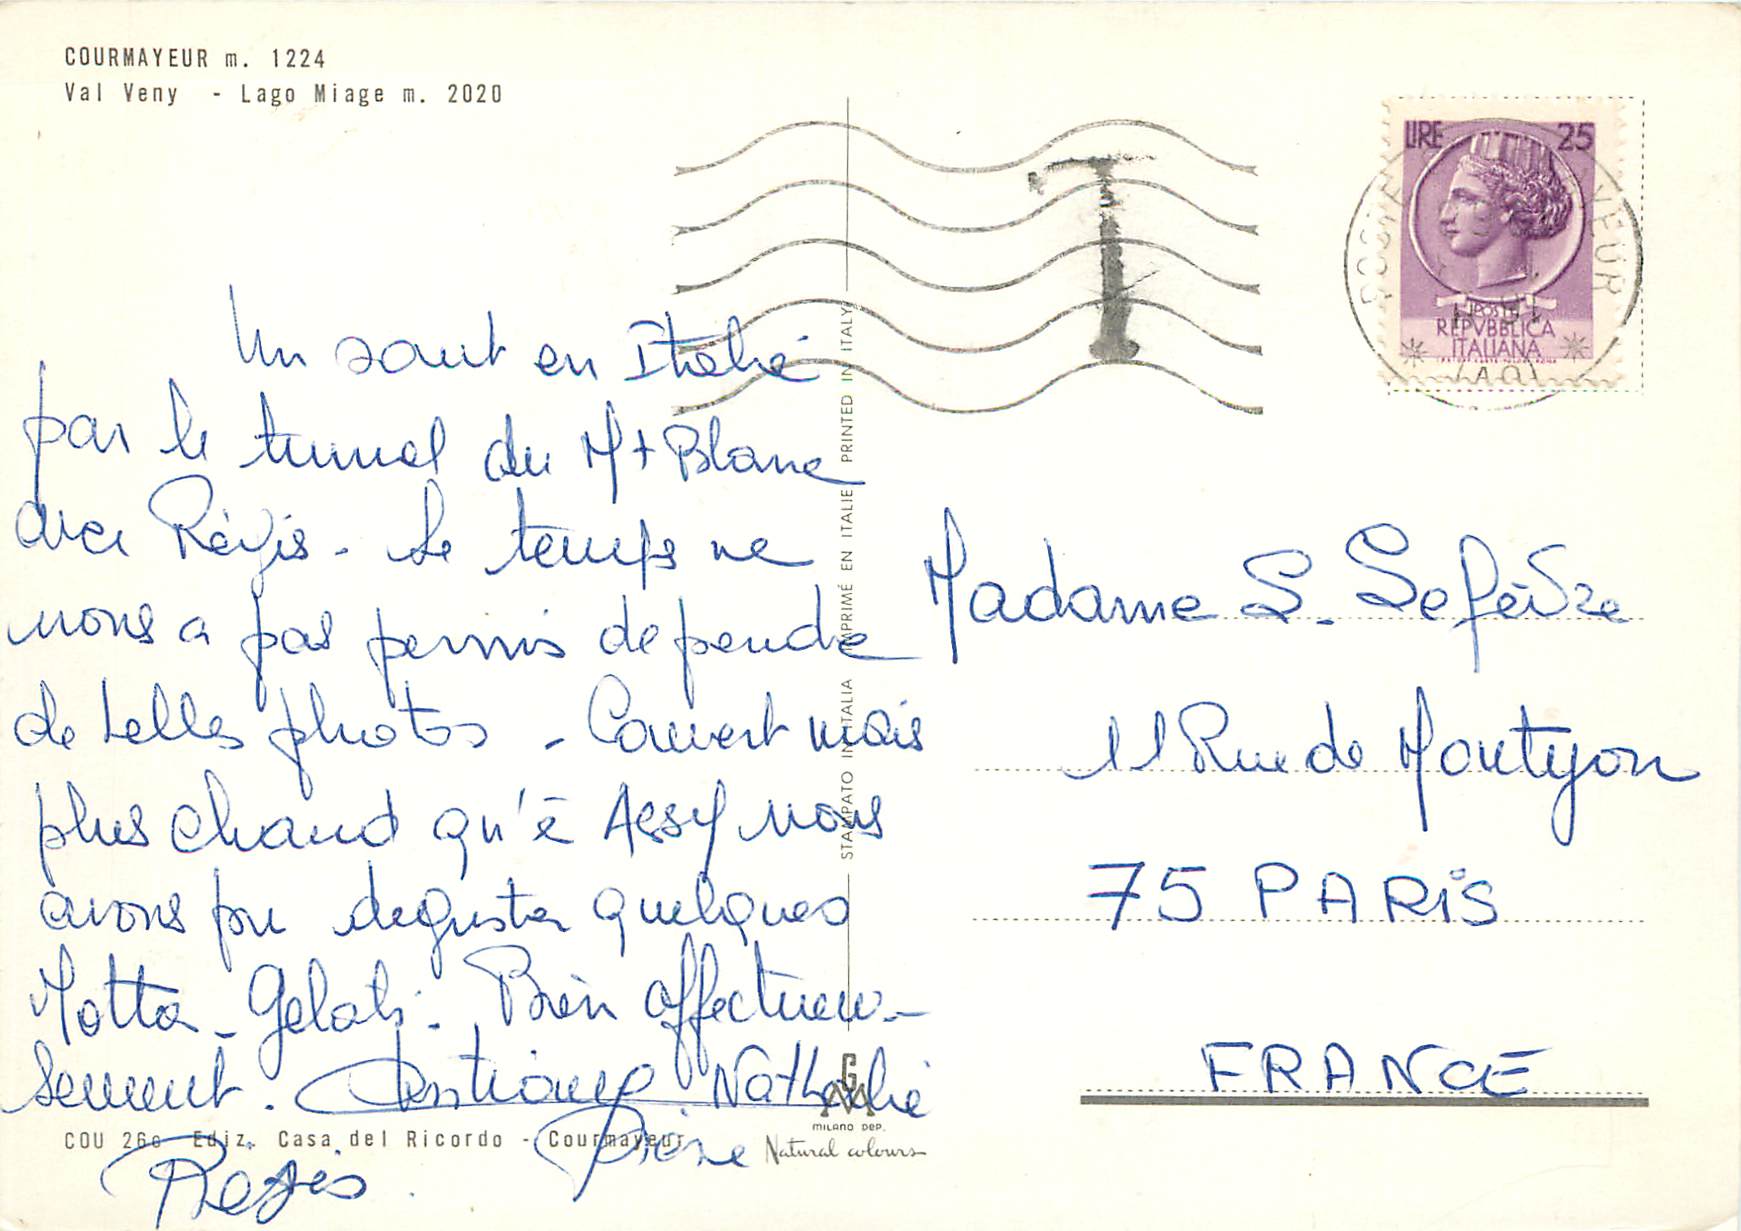 COURMAYEUR m. 1224
Val Veny - Lago Miage m. 2020
Un saut en Italie
par le tunnel du Mt Blanc
avec Régis - Le temps ne
nous a pas permis de pendre
de belles photos - Couvert mais
plus chaud qu'à Assy nous
avons pu deguster quelques
Motta - Gelati - Bien affectueu-
sement. Christiane Nathalie
Régis.
COU 260 Ediz. Casa del Ricordo - Courmayeur
STAMPATO IN ITALIA IMPRIMÉ EN ITALIE PRINTED IN ITALY
GM
MILANO DEP.
Natural colours
T
LIRE 25
POSTE
REPVBBLICA
ITALIANA
POSTE COURMAYEUR
(AO)
Madame S. Lefèvre
11 Rue de Montyon
75 PARIS
FRANCE